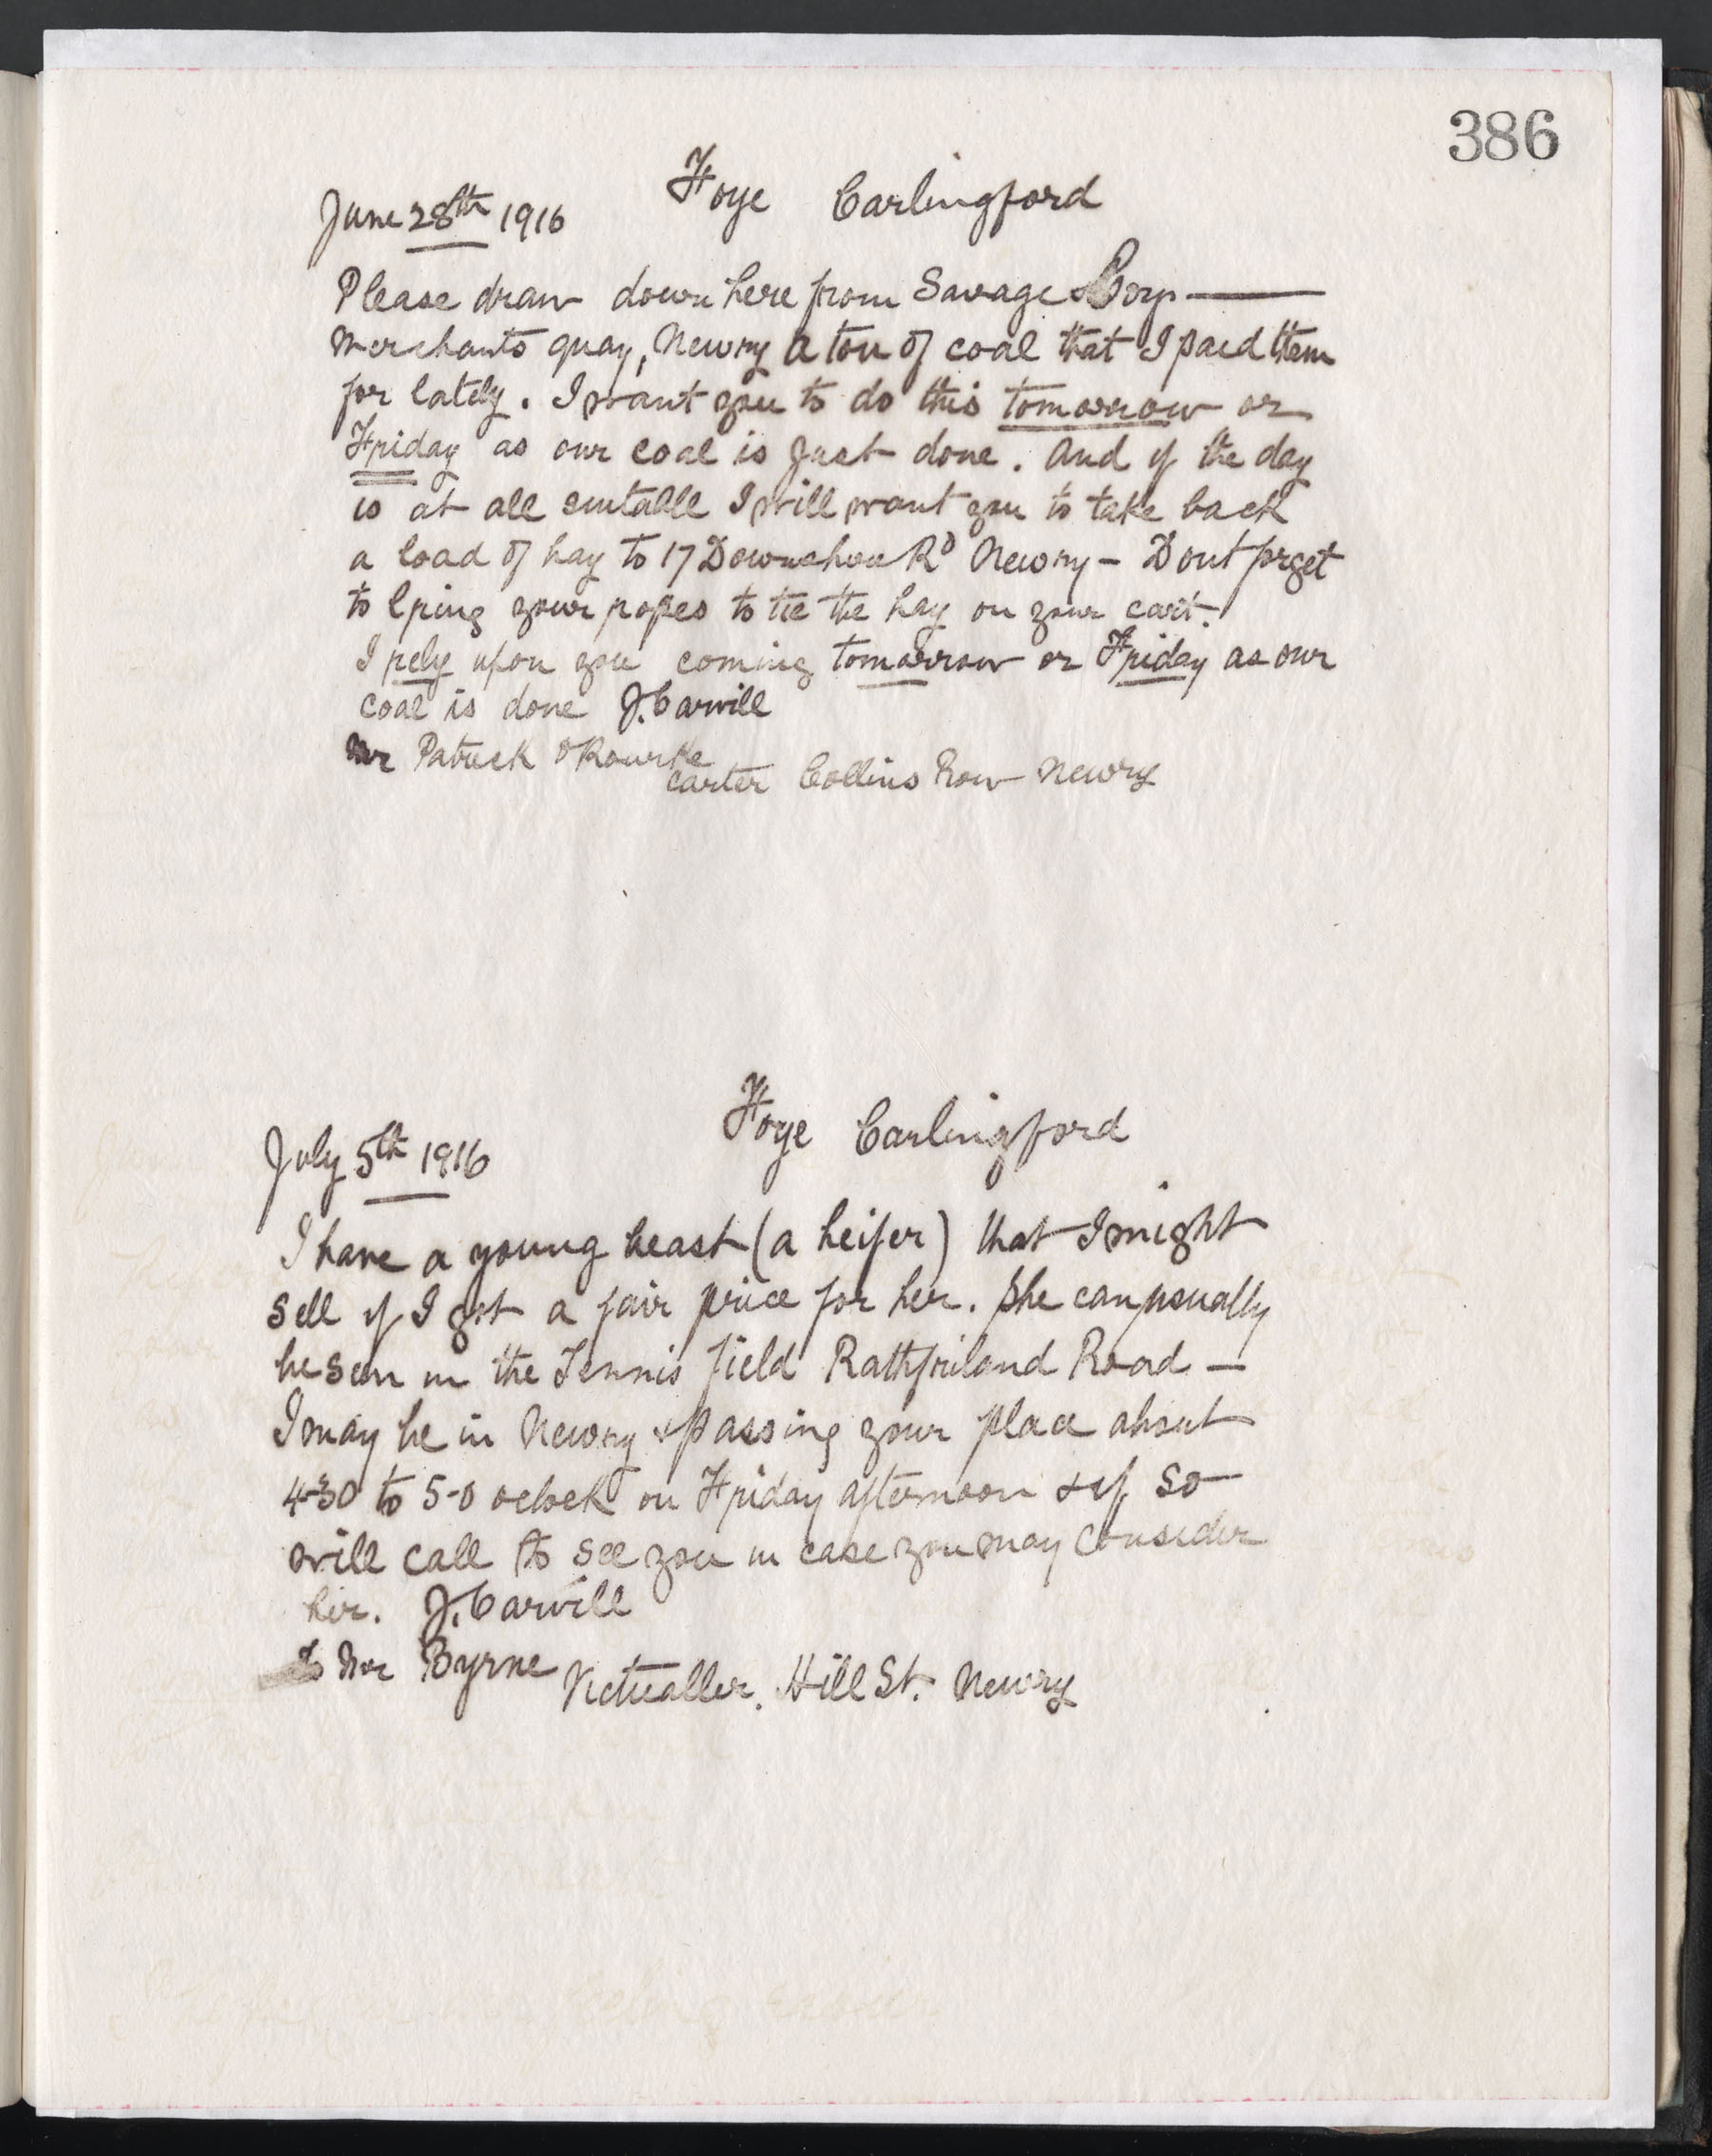 386
Foye Carlingford
June 28th 1916
Please draw down here from Savage &
Merchants quay, Newry a ton of coal that I paid them
for lately. I want you to do this tomorrow or
Friday as our coal is just done. And if the day
is at all suitable I will want you to take back
a load of hay to 17 Downshire Rd Newry - Dont forget
to bring your ropes to tie the hay on your cart.
I rely upon you coming tomorrow or Friday as our
coal is done J. Carvill
Mr Patrick O'Rourke
Carter Collins Row Newry
Foye Carlingford
July 5th 1916
I have a young beast (a heifer) that I might
sell if I got a fair price for her. She can usually
be seen in the Tennis field Rathfriland Road -
I may be in Newry & passing your place about
4-30 to 5-0 oclock on Friday afternoon & if so
will call to see you in case you may consider
her. J. Carvill
To Mr Byrne
Victualler. Hill St. Newry